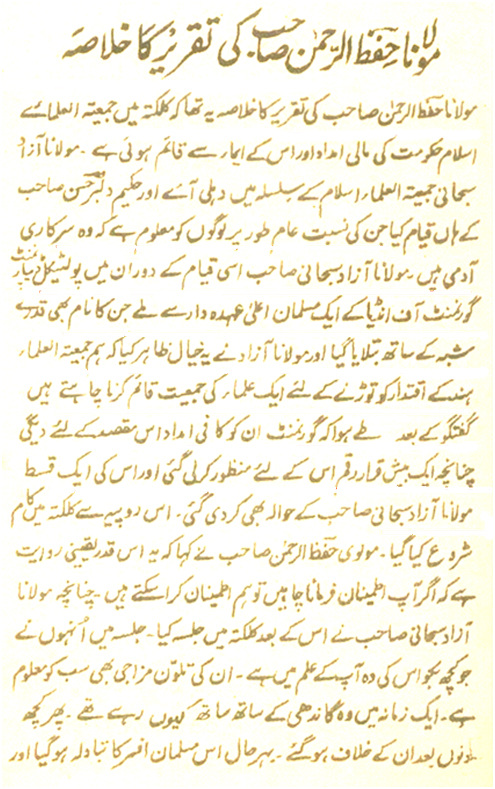 مولانا حفظ الرحمٰن صاحب کی تقریر کا خلاصہ
مولانا حفظ الرحمٰن صاحب کی تقریر کا خلاصہ یہ تھا کہ کلکتہ میں جمعیۃ العلمائے
اسلام حکومت کی مالی امداد اور اس کے ایما سے قائم ہوئی ہے ۔ مولانا آزاد
سبحانی جمعیۃ العلماء اسلام کے سلسلہ میں دہلی آئے اور حکیم دلبر حسن صاحب
کے ہاں قیام کیا جن کی نسبت عام طور پر لوگوں کو معلوم ہے کہ وہ سرکاری
آدمی ہیں ۔ مولانا آزاد سبحانی صاحب اسی قیام کے دوران میں پولٹیکل ڈیپارٹمنٹ
گورنمنٹ آف انڈیا کے ایک مسلمان اعلیٰ عہدہ دار سے ملے جن کا نام بھی قدرے
شبہ کے ساتھ بتلایا گیا اور مولانا آزاد نے یہ خیال ظاہر کیا کہ ہم جمعیۃ العلماء
ہند کے اقتدار کو توڑنے کے لئے ایک علماء کی جمعیت قائم کرنا چاہتے ہیں
گفتگو کے بعد طے ہوا کہ گورنمنٹ ان کو کافی امداد اس مقصد کے لئے دیگی
چنانچہ ایک بیش قرار رقم اس کے لئے منظور کرلی گئی اور اس کی ایک قسط
مولانا آزاد سبحانی صاحب کے حوالہ بھی کر دی گئی ۔ اس روپیہ سے کلکتہ میں کام
شروع کیا گیا ۔ مولوی حفظ الرحمٰن صاحب نے کہا کہ یہ اس قدر یقینی روایت
ہے کہ اگر آپ اطمینان فرمانا چاہیں تو ہم اطمینان کرا سکتے ہیں ۔ چنانچہ مولانا
آزاد سبحانی صاحب نے اس کے بعد کلکتہ میں جلسہ کیا ۔ جلسہ میں انہوں نے
جو کچھ بجو اس کی وہ آپ کے علم میں ہے ۔ ان کی تلون مزاجی بھی سب کو معلوم
ہے ۔ ایک زمانہ میں وہ گاندھی کے ساتھ ساتھ کیوں رہے تھے ۔ پھر کچھ
دنوں بعد ان کے خلاف ہو گئے ۔ بہرحال اس مسلمان افسر کا تبادلہ ہو گیا اور